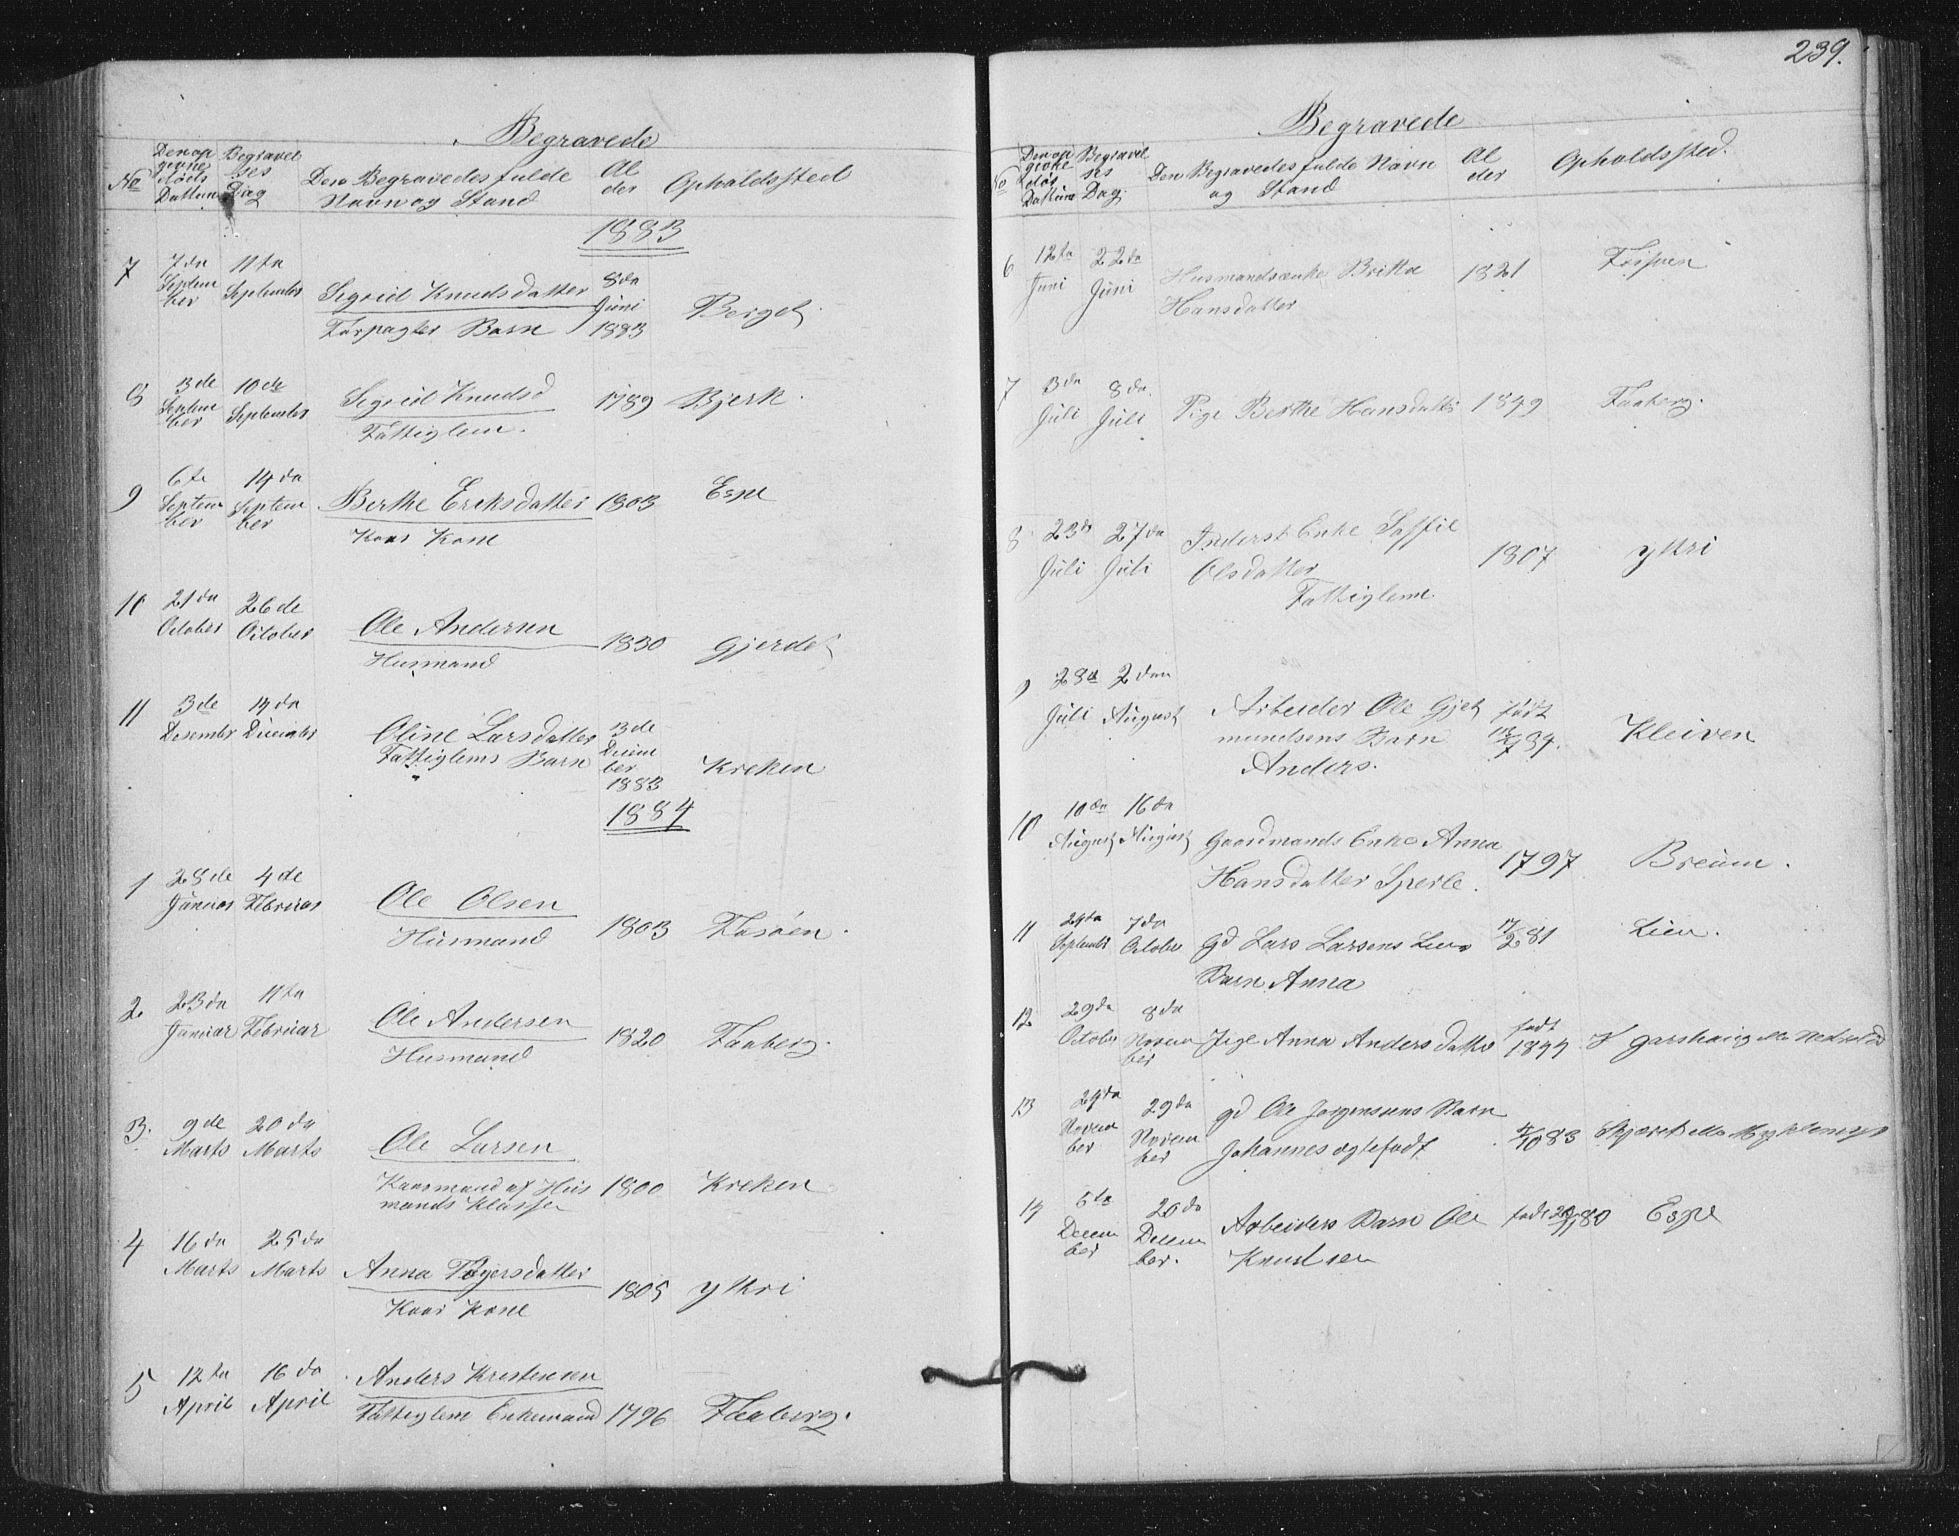 Begravede
No
Den op
givne
Døds
Dattum
Begravel
ses
Dag
Den Begravedes fulde
Navn og Stand
Al
der
Opholdssted
1883
7
7da
Septem
ber
11ta
September
Sigrid Knudsdatter
Forpagter Barn
8da
Juni
1883
Berget
8
3de
Septem
ber
10de
September
Sigrid Knudsd
Fattiglem.
1789
Bjerk.
9
6te
Septem
ber
14da
Septem
ber
Berthe Eriksdatter
Kaar Kone
1803
Espe
10
21da
October
26de
October
Ole Andersen
Husmand
1830
Gjerdet
11
3de
Desember
14da
December
Oline Larsdatter
Fattiglems Barn
3de
Decem
ber
1883
Kreken
1884
1
28de
Januar
4de
Februar
Ole Olsen
Husmand
1803
2
23da
Januar
11ta
Februar
Ole Andersen
Husmand
1820
Faaberg.
3.
9de
Marts
20da
Marts
Ole Larsen
Kaarmand af Hus
mands Klasse
1800
Kreken
4
16da
Marts
25da
Marts
Anna Tøgersdatter
Kaar Kone
1805
Ytri
5
12ta
April
16da
April
Anders Kristensen
Fattiglem Enkemand
1796
Faaberg.
239.
Begravede
No
Den op
givne
døds
Dattum
Begravel
ses
Dag.
Den Begravedes fulde Navn
og Stand
Al
der
Opholdssted.
6
12ta
Juni
22da
Juni
Husmandsenke Britta
Hansdatter
1821
7
3da
Juli
8da
Juli
Pige Berthe Hansdatter
1849
Faaberg.
8
23da
Juli
27da
Juli
Inderst Enke
Olsdatter
Fattiglem.
1807
Ytri
9
28da
Juli
2den
August
Arbeider Ole Gjet
mundsens Barn
Anders.
født
Kleiven
10
10da
August
16da
August
Gaardmands Enke Anna
Hansdatter Sperle.
1797
Breum.
11
September
7da
October
Gd Lars Larsens Lien
Barn Anna
17/2 81
Lien.
12
29da
October
8da
Novem
ber
Pige Anna Andersdatter
født
1844
13
24da
Novem
ber
29da
Novem
ber
Gd Ole Jørgensens Barn
Johannes ægtefødt
14
5ta
Decem
ber
20da
Decem
ber.
Arbeiders Barn Ole
Knudsen
født
80
Espe